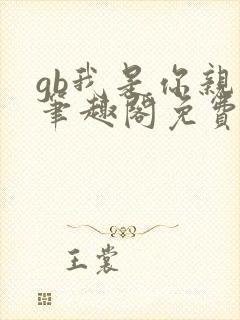 gb我是你親
筆趣閣免費
王裳